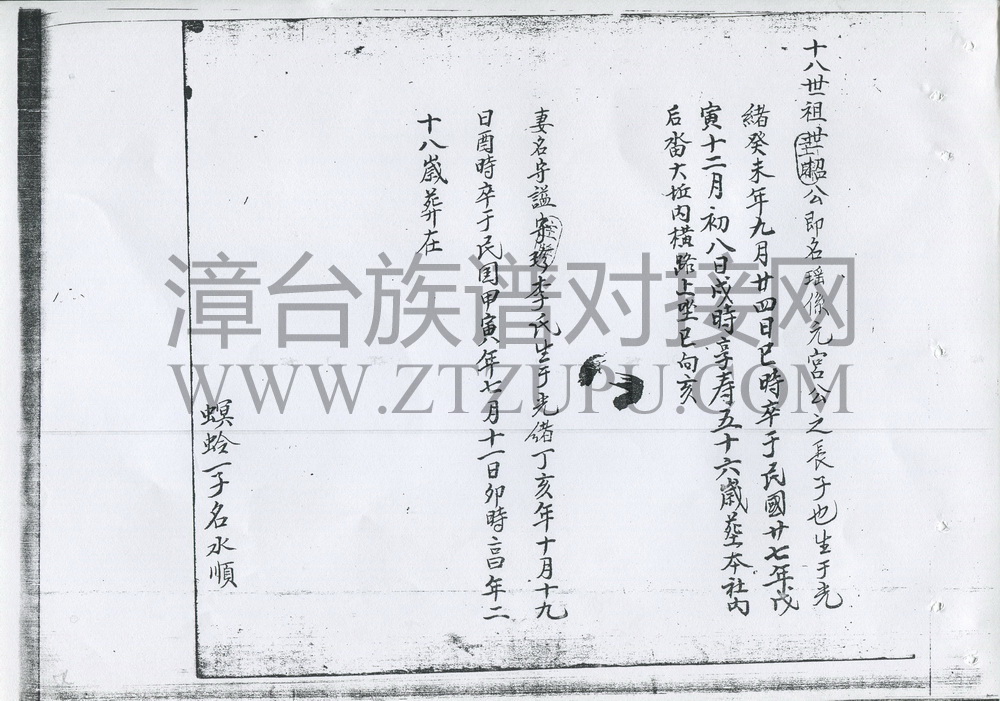 十八世祖世昭公即名瑤係元宮公之長子也生于光
緒癸未年九月廿四日巳時卒于民國廿七年戊
寅十二月初八日戌時享寿五十六歲塟本社内
后畓大坵内橫路上坐巳向亥
妻名字謚李氏生于光緒丁亥年十月十九
日酉時卒于民国甲寅年七月十一日卯時高年二
十八歲葬在
螟蛉一子名水順
漳台族谱对接网
WWW.ZTZUPU.COM